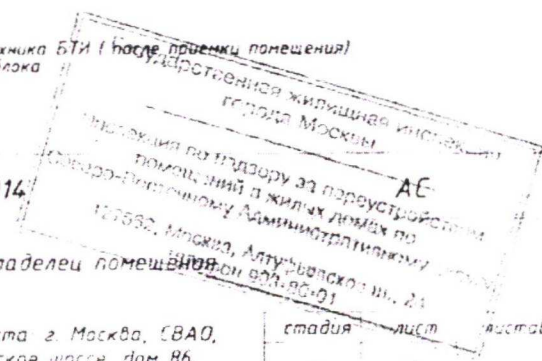 хника БТИ (после приемки помещения)
блока
Государственная жилищная инспекция
города Москвы
Инспекция по надзору за переустройством
помещений в жилых домах по
Северо-Восточному Административному округу
Москва, Алтуфьевское ш.,
903-80-01
АС
14
аделец помещения
та: г. Москва, СВАО,
ское шоссе, дом 86
стадия лист листов